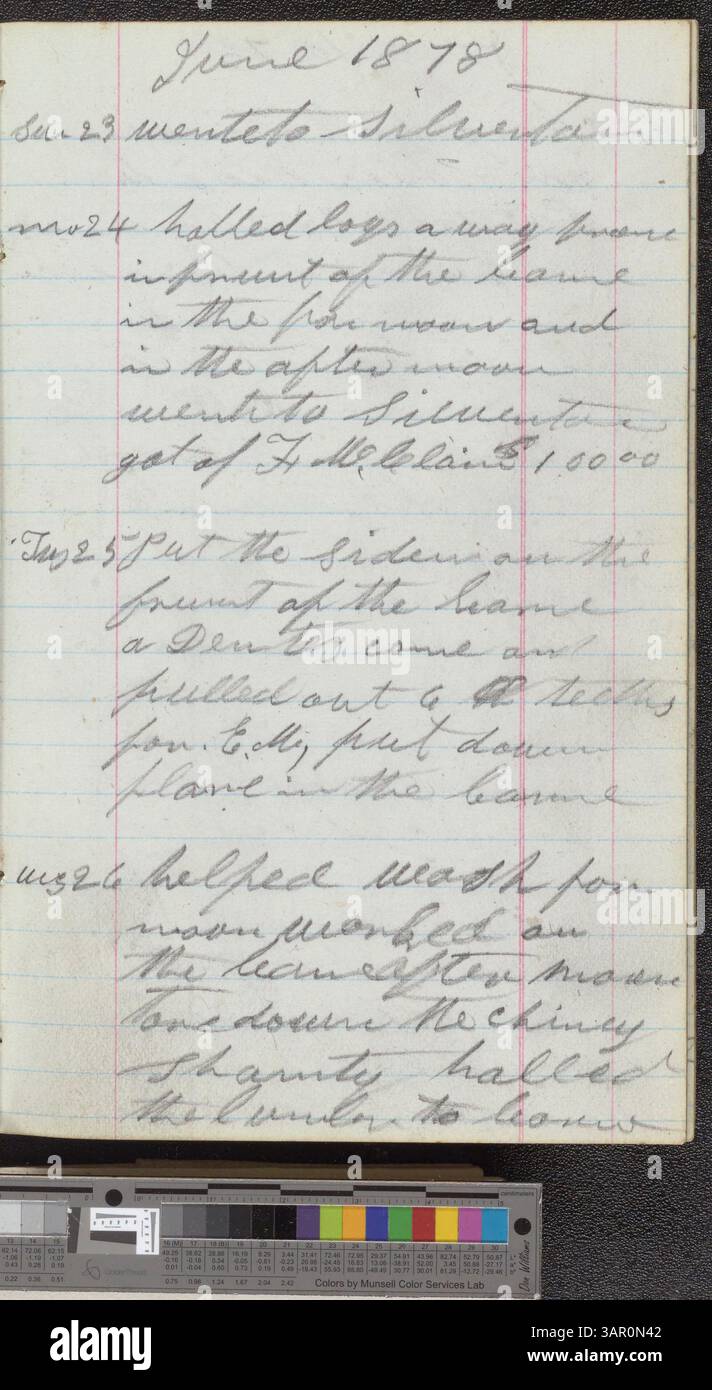 June 1878
Sun 23 wente to Silverton
mo 24 halled logs a way from
in frunt of the barne
in the for noon and
in the after noon
wente to Silverton
got of F Mc,Clain $ 1 00 00
Tus 25 Put the Siden on the
frunt of the barne
a Dentes came and
pulled out 6 teeths
for. E. M, put down
flore in the barne
wes 26 helped wash for
noon worked on
the barne after noon
tore down the chiney
shanty halled
the lumber to barne
alamy
Image ID: 3AR0N42
www.alamy.com
centimeters
Colors by Munsell Color Services Lab